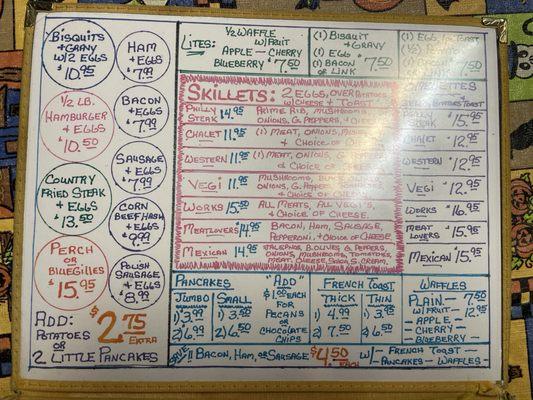 BISQUITS
+ GRAVY
W/2 EGGS
$10.95
HAM
+ EGGS
$7.99
1/2 LB.
HAMBURGER
+ EGGS
$10.50
BACON
+ EGGS
$7.99
SAUSAGE
+ EGGS
$7.99
COUNTRY
FRIED STEAK
+ EGGS
$13.50
CORN
BEEF HASH
+ EGGS
$9.99
PERCH
OR
BLUEGILLES
$15.95
POLISH
SAUSAGE
+ EGGS
$8.99
ADD: $2.75
POTATOES EXTRA
OR
2 LITTLE PANCAKES
LITES:
1/2 WAFFLE
W/FRUIT
APPLE - CHERRY
BLUEBERRY $7.50
(1) BISQUIT
+ GRAVY
(1) EGG
(1) BACON
OR LINK $7.50
(1) EGG
7.50
SKILLETS: 2 EGGS, OVER
W/CHEESE + TOAST
PHILLY STEAK 14.95 PRIME RIB, MUSHROOMS
ONIONS, G. PEPPERS, + CH
CHALET 11.95 (1) MEAT, ONIONS,
+ CHOICE OF
WESTERN 11.95 (1) MEAT, ONIONS, G.
+ CHOICE OF CHE
VEGI 11.95 MUSHROOMS,
ONIONS, G. PEPPERS,
+ CHOICE OF CHE
WORKS 15.50 ALL MEATS, ALL VEGI'S,
+ CHOICE OF CHEESE.
MEATLOVERS $14.95 BACON, HAM, SAUSAGE,
PEPPERONI, + CHOICE OF CHEESE
MEXICAN 14.95 JALEPENOS, B.OLIVES, G. PEPPERS,
ONIONS, MUSHROOMS, TOMATOES,
MEAT, CHEESE, SALSA, S. CREAM,
TOAST
STEAK $15.95
CHALET $12.95
WESTERN $12.95
VEGI $12.95
WORKS $16.95
MEAT
LOVERS $15.95
MEXICAN $15.95
PANCAKES
JUMBO SMALL
1) 3.99 1) 3.50
2) 6.99 2) 6.50
"ADD"
$1.00 EACH
FOR
PECANS
OR
CHOCOLATE
CHIPS
FRENCH TOAST
THICK THIN
1) 4.99 1) 3.95
2) 7.50 2) 6.50
WAFFLES
PLAIN - 7.50
W/FRUIT - 12.95
- APPLE -
- CHERRY -
- BLUEBERRY -
BACON, HAM, OR SAUSAGE $4.50 EACH W/ - FRENCH TOAST -
- PANCAKES - WAFFLES -